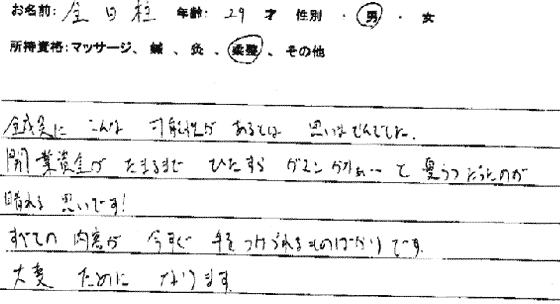 お名前: 金 日柱 年齢: 29 才 性別 ・ 男 ・ 女
所持資格:マッサージ、鍼、灸、柔整、その他
こんな 可能性が あるとは 思いませんでした。
開業資金が たまるまで ひたすら ガマンかぁ… と 憂うつだったのが
晴れる 思いです!
すべての 内容が 今すぐ 手をつけられるものばかりです。
大変 ために なります。